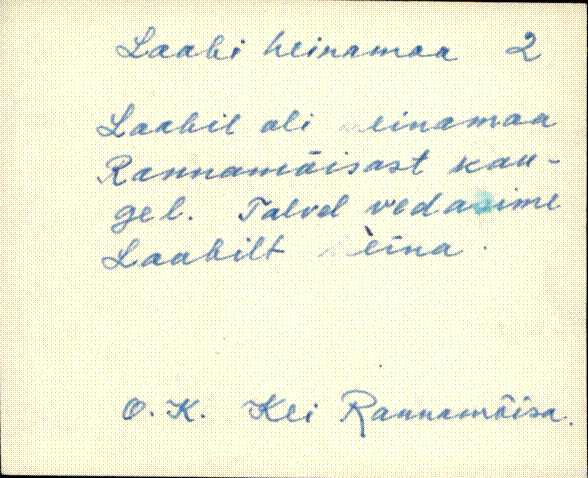 Laabi heinamaa 2
Laabil oli heinamaa
Rannamõisast kau-
gel. Talvel vedasime
Laabilt heina.
O. K. Kei Rannamõisa.